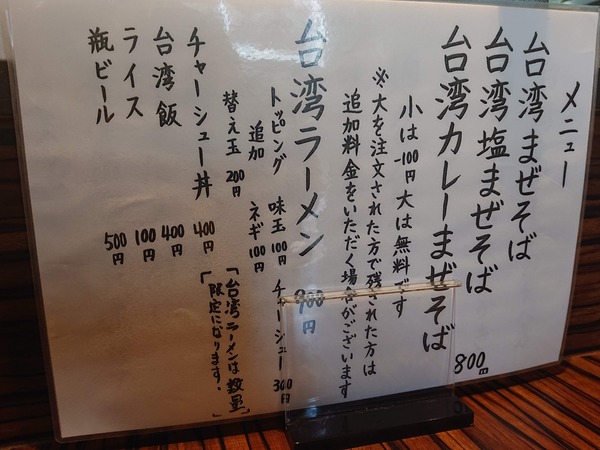 メニュー
台湾まぜそば
台湾塩まぜそば
台湾カレーまぜそば 800円
小は-100円 大は無料です
※大を注文された方で残された方は
追加料金をいただく場合がございます
台湾ラーメン 900円
トッピング 味玉 100円 チャーシュー 300円
追加 ネギ 100円
替え玉 200円
「台湾ラーメンは数量」
「限定になります。」
チャーシュー丼 400円
台湾飯 400円
ライス 100円
瓶ビール 500円